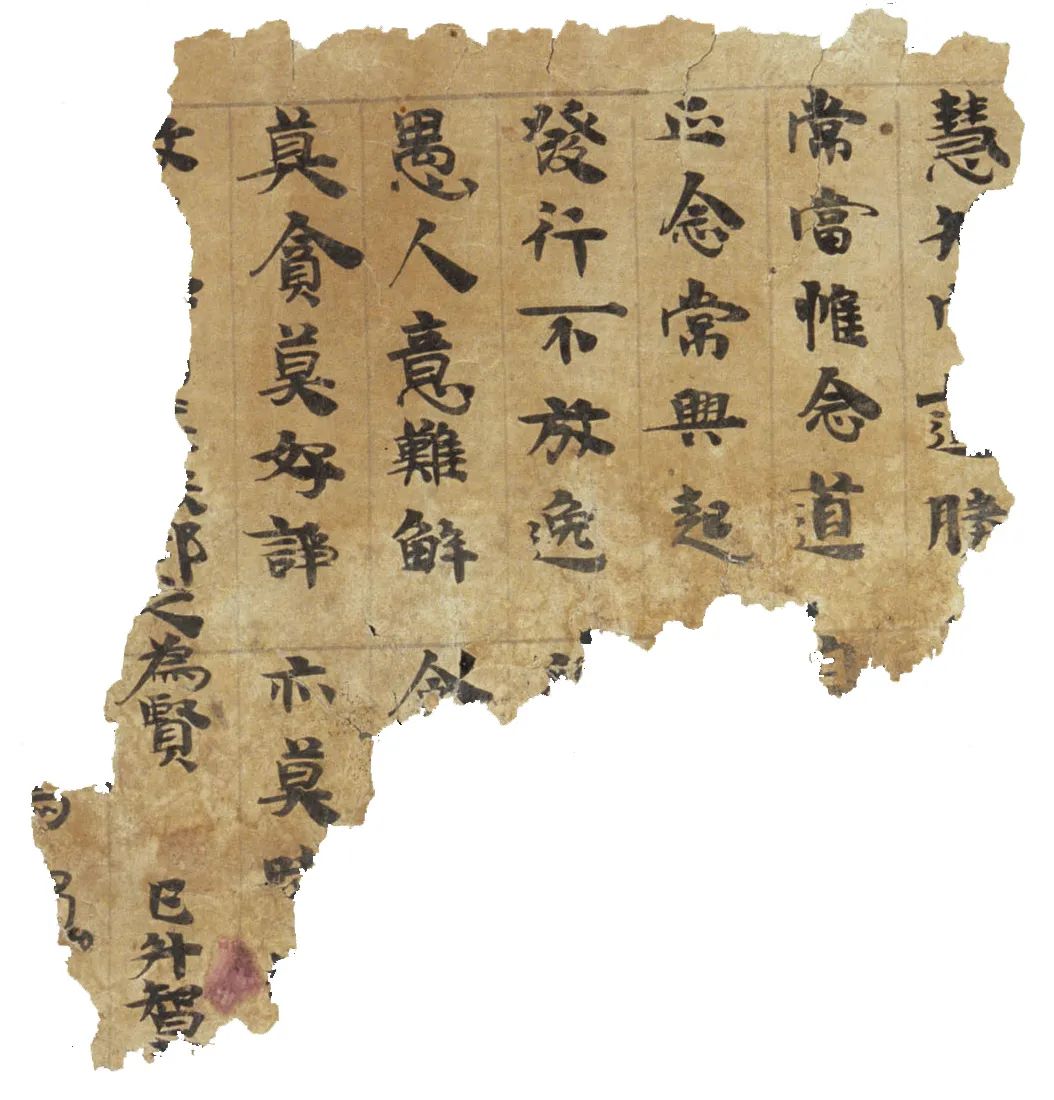 慧知 道勝
常當惟念道 自
正念常興起
發行不放逸
愚人意難解
莫貪莫好諍 亦莫嗜
却之為賢 已升智